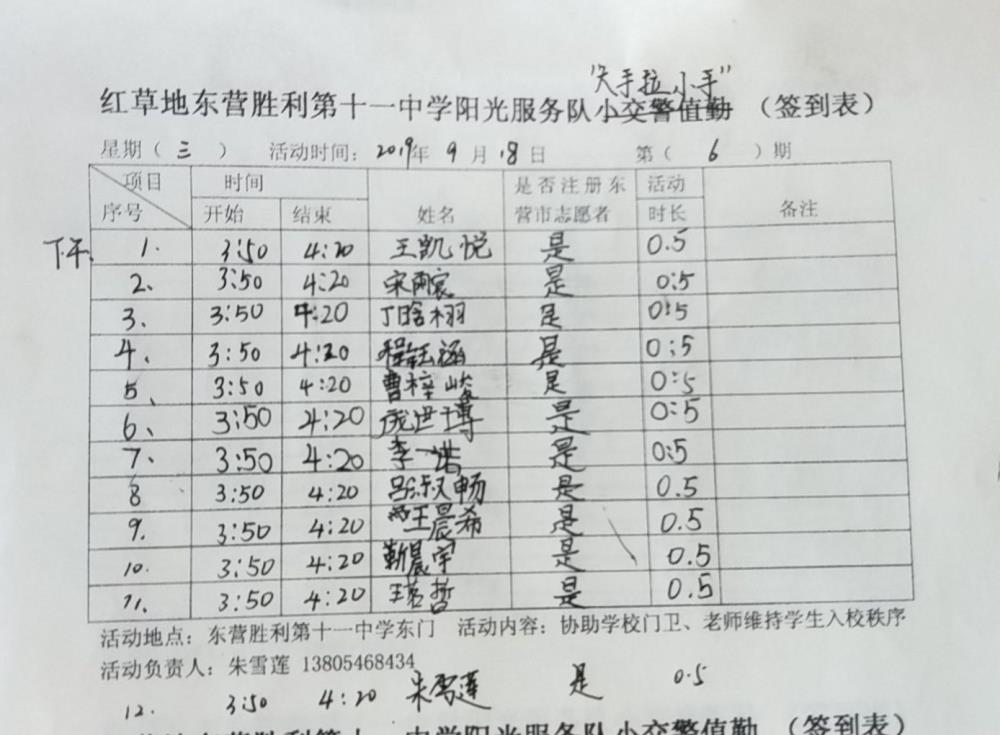 "大手拉小手"
红草地东营胜利第十一中学阳光服务队小交警值勤 (签到表)
星期(三) 活动时间: 2019年9月18日 第(6)期
项目 时间 是否注册东 活动
序号 开始 结束 姓名 营市志愿者 时长 备注
下午 1. 3:50 4:20 王凯悦 是 0.5
2、 3:50 4:20 宋雨宸 是 0:5
3、 3:50 4:20 丁晗栩 是 0:5
4、 3:50 4:20 程钰涵 是 0:5
5、 3:50 4:20 曹梓峻 是 0:5
6、 3:50 4:20 庞世博 是 0:5
7、 3:50 4:20 李一诺 是 0:5
8 3:50 4:20 吕淑畅 是 0.5
9. 3:50 4:20 王晨希 是 0.5
10. 3:50 4:20 靳晨宇 是 0.5
11. 3:50 4:20 王茗哲 是 0.5
活动地点: 东营胜利第十一中学东门 活动内容: 协助学校门卫、老师维持学生入校秩序
活动负责人: 朱雪莲 13805468434
12. 3:50 4:20 朱雪莲 是 0.5
中学阳光服务队小交警值勤 (签到表)